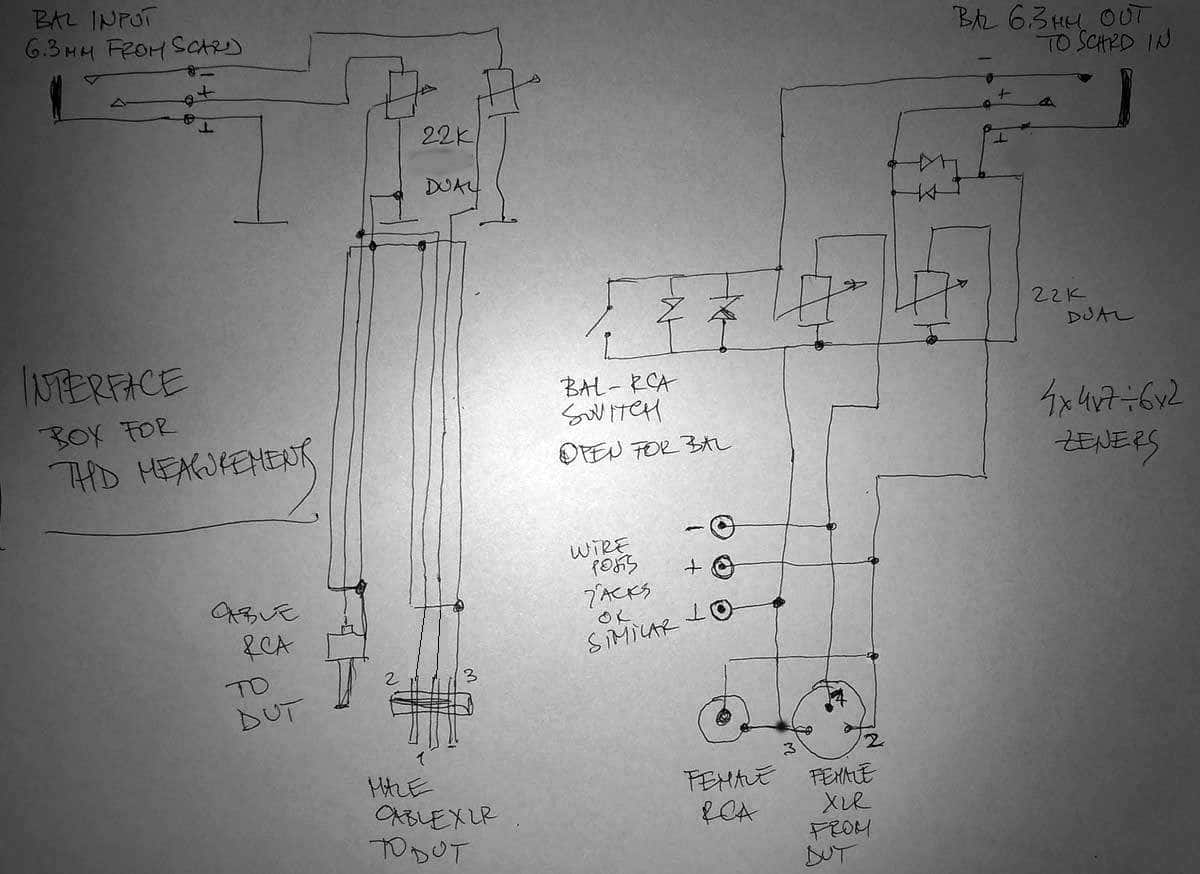 BAL INPUT
6.3MM FROM SCARD
-
+
⊥
22K
DUAL
BAL 6.3MM OUT
TO SCARD IN
-
+
⊥
22K
DUAL
4x4v7÷6v2
ZENERS
INTERFACE
BOX FOR
THD MEASUREMENTS
BAL-RCA
SWITCH
OPEN FOR BAL
WIRE
POSTS
JACKS
OR
SIMILAR
-
+
⊥
CABLE
RCA
TO
DUT
2
3
1
MALE
CABLE XLR
TO DUT
FEMALE
RCA
3
2
FEMALE
XLR
FROM
DUT